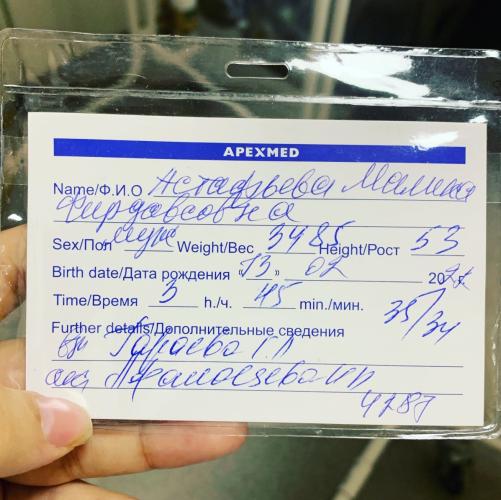 APEXMED
Name/Ф.И.О Астафьева Малика
Фирдавсовна
Sex/Пол муж Weight/Вес 3485 Height/Рост 53
Birth date/Дата рождения "13" 02 202
Time/Время 3 h./ч. 45 min./мин. 35/34
Further details/Дополнительные сведения
Гараева Г.Р
4287